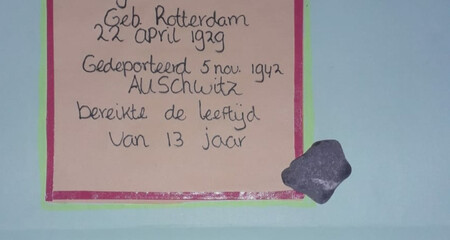 Geb Rotterdam
22 April 1929
Gedeporteerd 5 nov. 1942
AUSchwitz
bereikte de leeftijd
Van 13 jaar